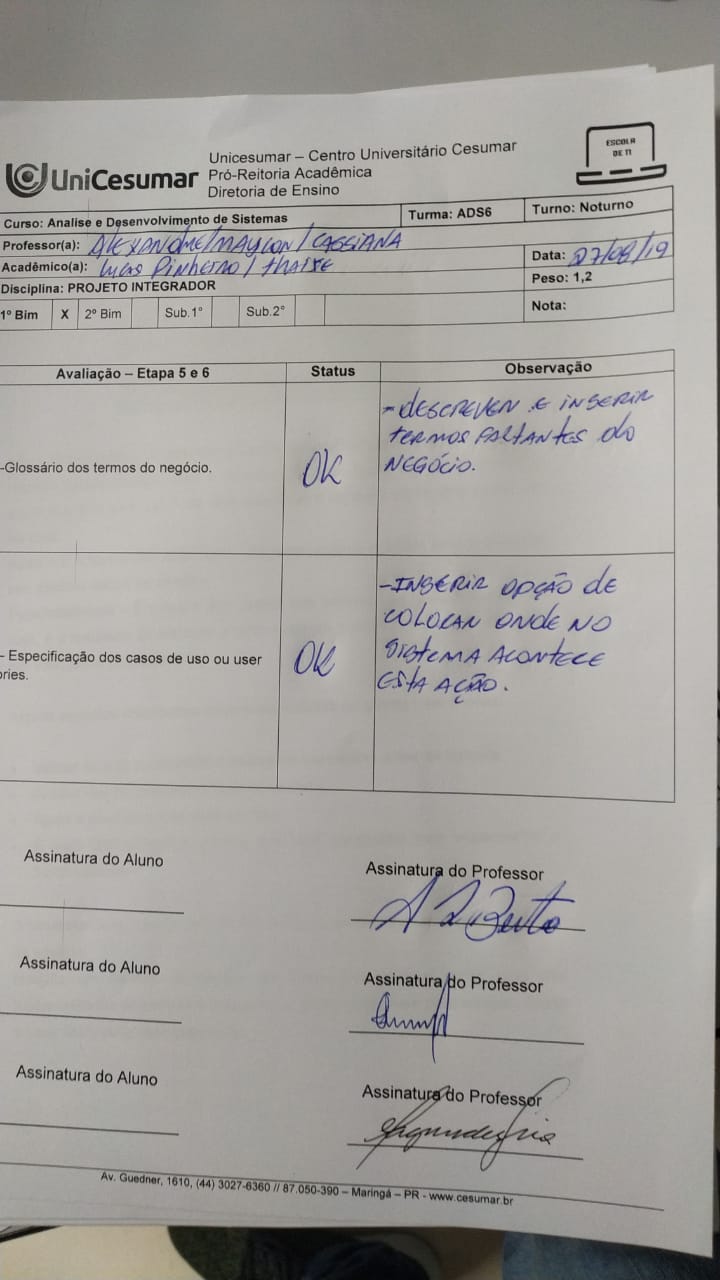 UniCesumar
Unicesumar – Centro Universitário Cesumar
Pró-Reitoria Acadêmica
Diretoria de Ensino
ESCOLA
DE TI
Curso: Analise e Desenvolvimento de Sistemas Turma: ADS6 Turno: Noturno
Professor(a): ALEXANDRE/MAYCON/CASSIANA
Acadêmico(a): Lucas Pinheiro / thaise Data: 27/08/19
Disciplina: PROJETO INTEGRADOR Peso: 1,2
1º Bim X 2º Bim Sub.1° Sub.2° Nota:
Avaliação – Etapa 5 e 6 Status Observação
-DESCREVER E INSERIR
TERMOS FALTANTES do
NEGÓCIO.
-Glossário dos termos do negócio. OK
-INSERIR OPÇÃO de
COLOCAR ONDE NO
SISTEMA ACONTECE
ESTA AÇÃO.
- Especificação dos casos de uso ou user OK
ories.
Assinatura do Aluno Assinatura do Professor
Assinatura do Aluno Assinatura do Professor
Assinatura do Aluno Assinatura do Professor
Av. Guedner, 1610, (44) 3027-6360 // 87.050-390 – Maringá – PR - www.cesumar.br